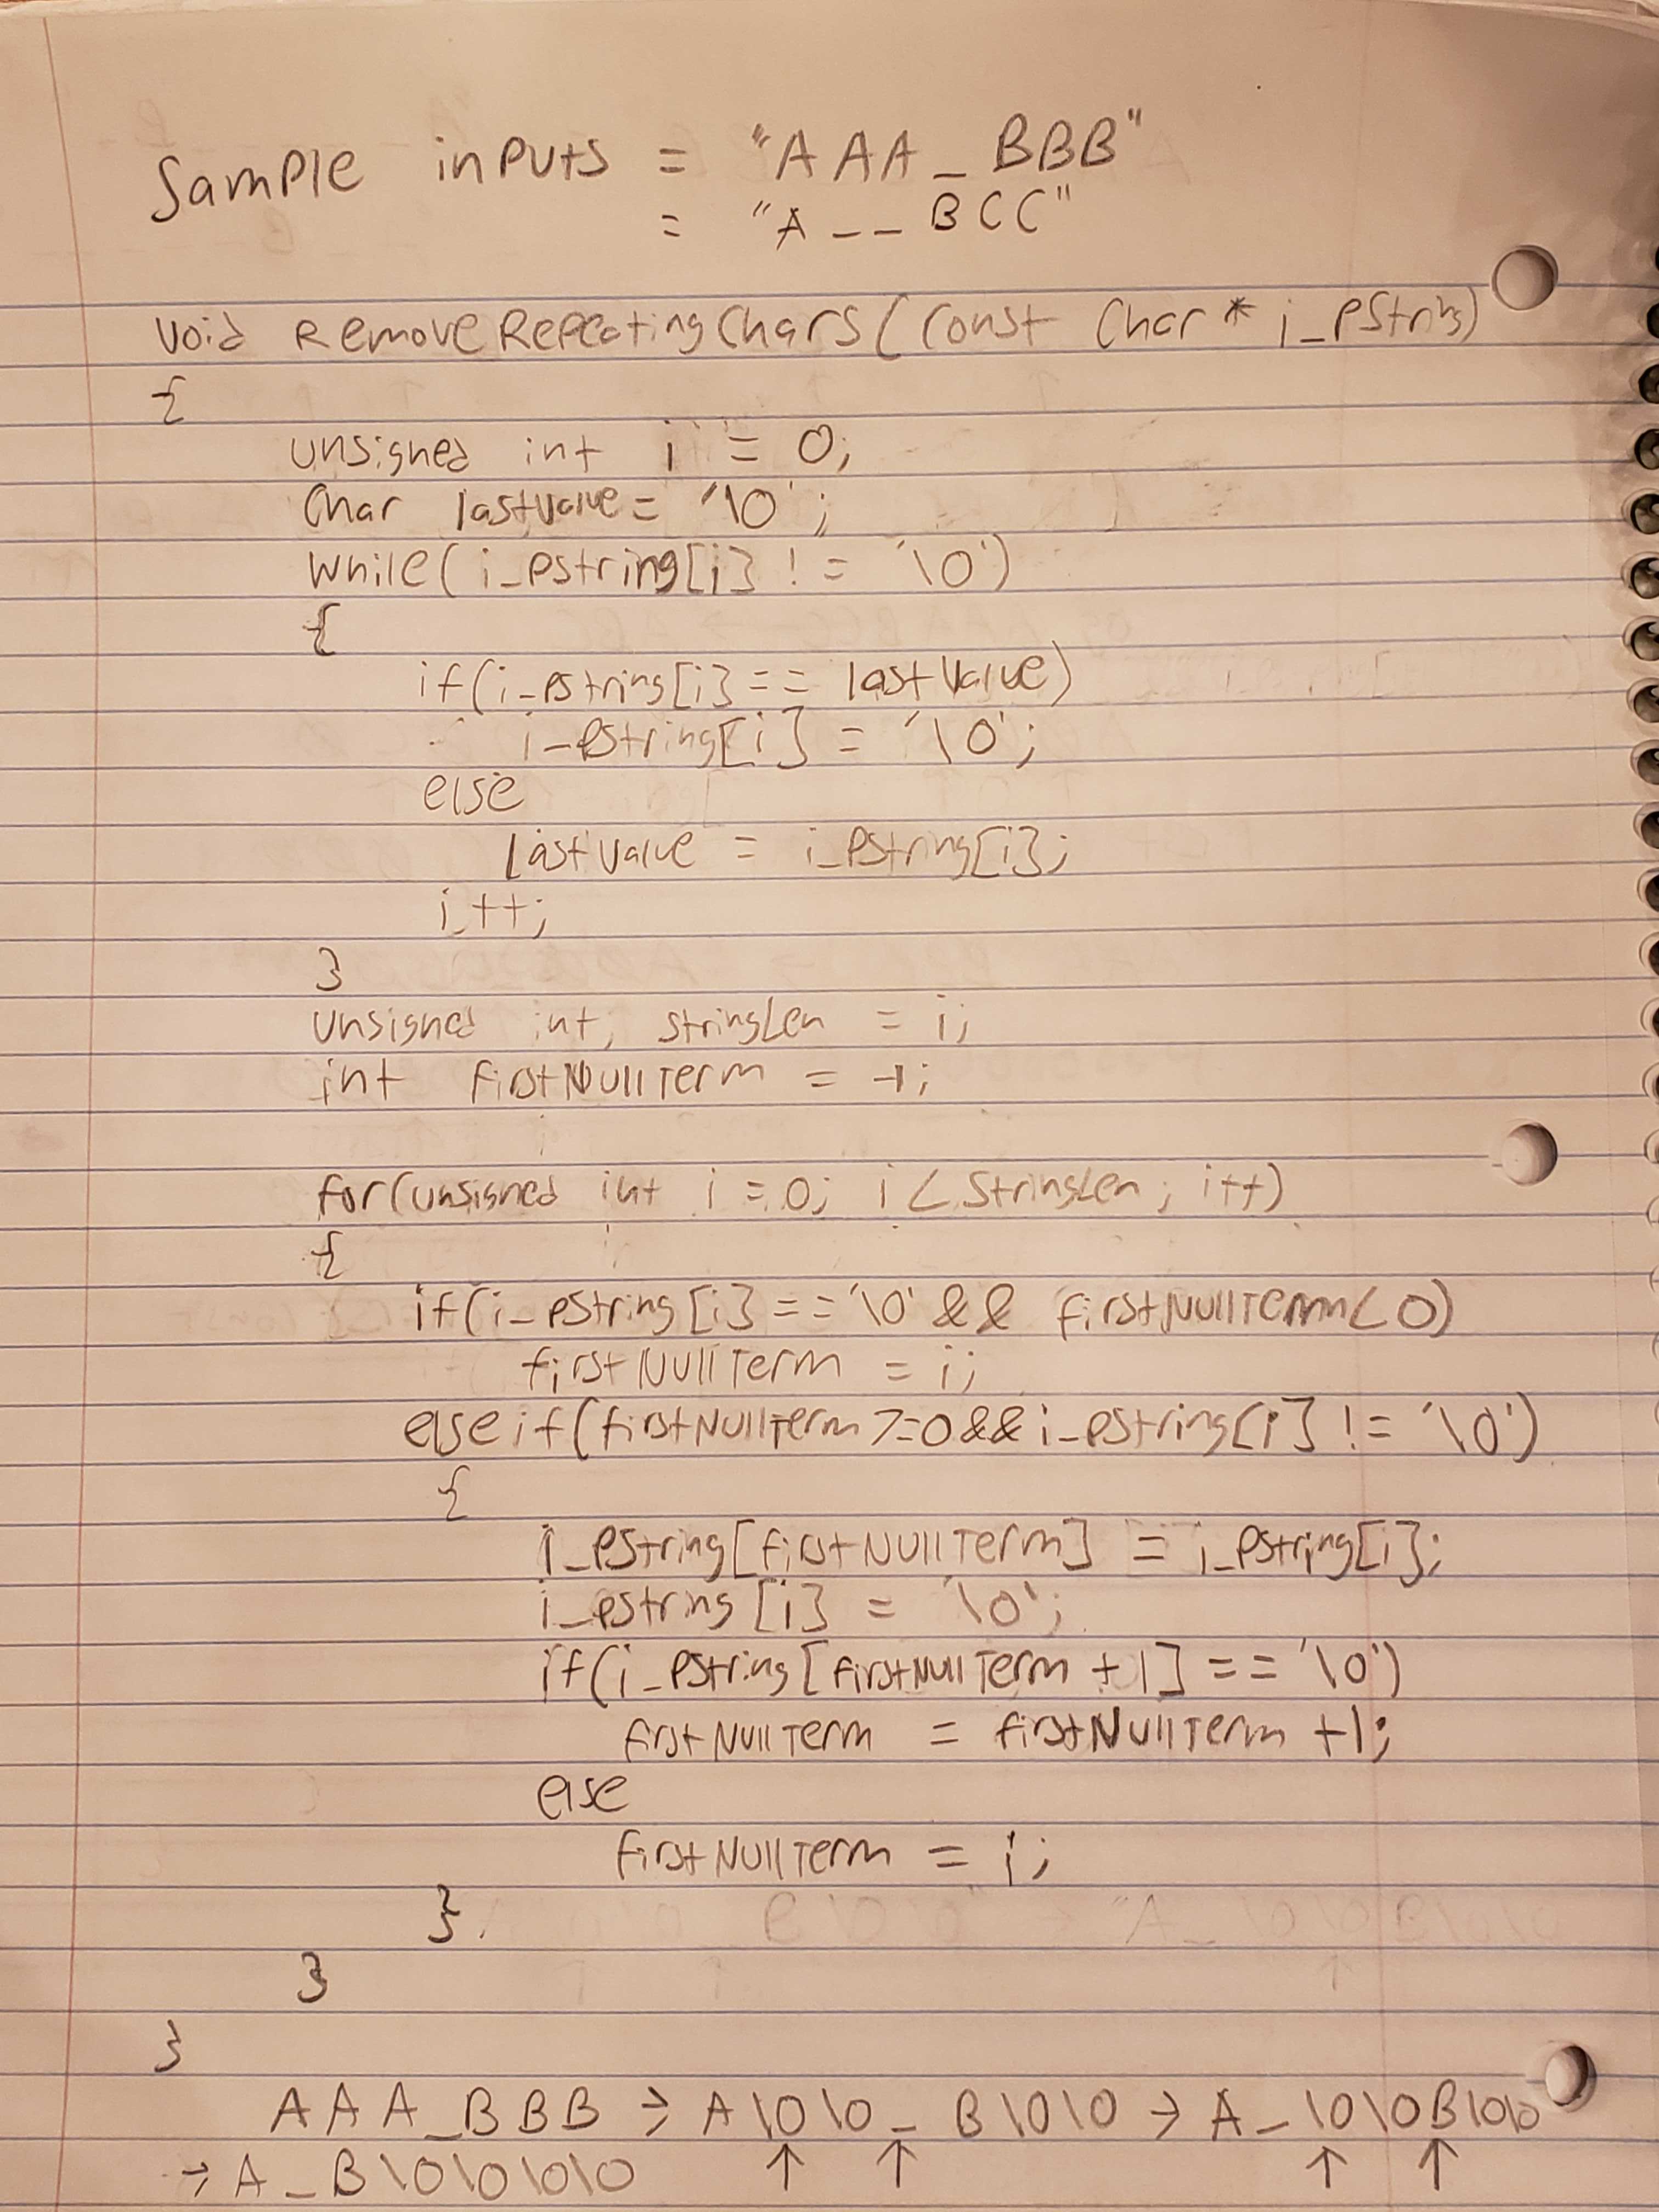 Sample inputs = "AAA_BBB"
= "A__BCC"
void RemoveRepeatingChars(const char* i_pString)
{
unsigned int i = 0;
char lastvalue = '\0';
while(i_pstring[i] != '\0')
{
if(i_pstring[i] == lastvalue)
i_pstring[i] = '\0';
else
lastvalue = i_pstring[i];
i++;
}
unsigned int, stringLen = i;
int firstNullTerm = -1;
for(unsigned int i = 0; i < StringLen; i++)
{
if(i_pString[i] == '\0' && firstNullTerm < 0)
firstNullTerm = i;
else if(firstNullTerm >= 0 && i_pstring[i] != '\0')
{
i_pString[firstNullTerm] = i_pstring[i];
i_pstring[i] = '\0';
if(i_pString[firstNullTerm + 1] == '\0')
firstNullTerm = firstNullTerm + 1;
else
firstNullTerm = i;
}
}
}
AAA_BBB → A\0\0_B\0\0 → A_\0\0B\0\0
→ A_B\0\0\0\0 ↑ ↑ ↑ ↑